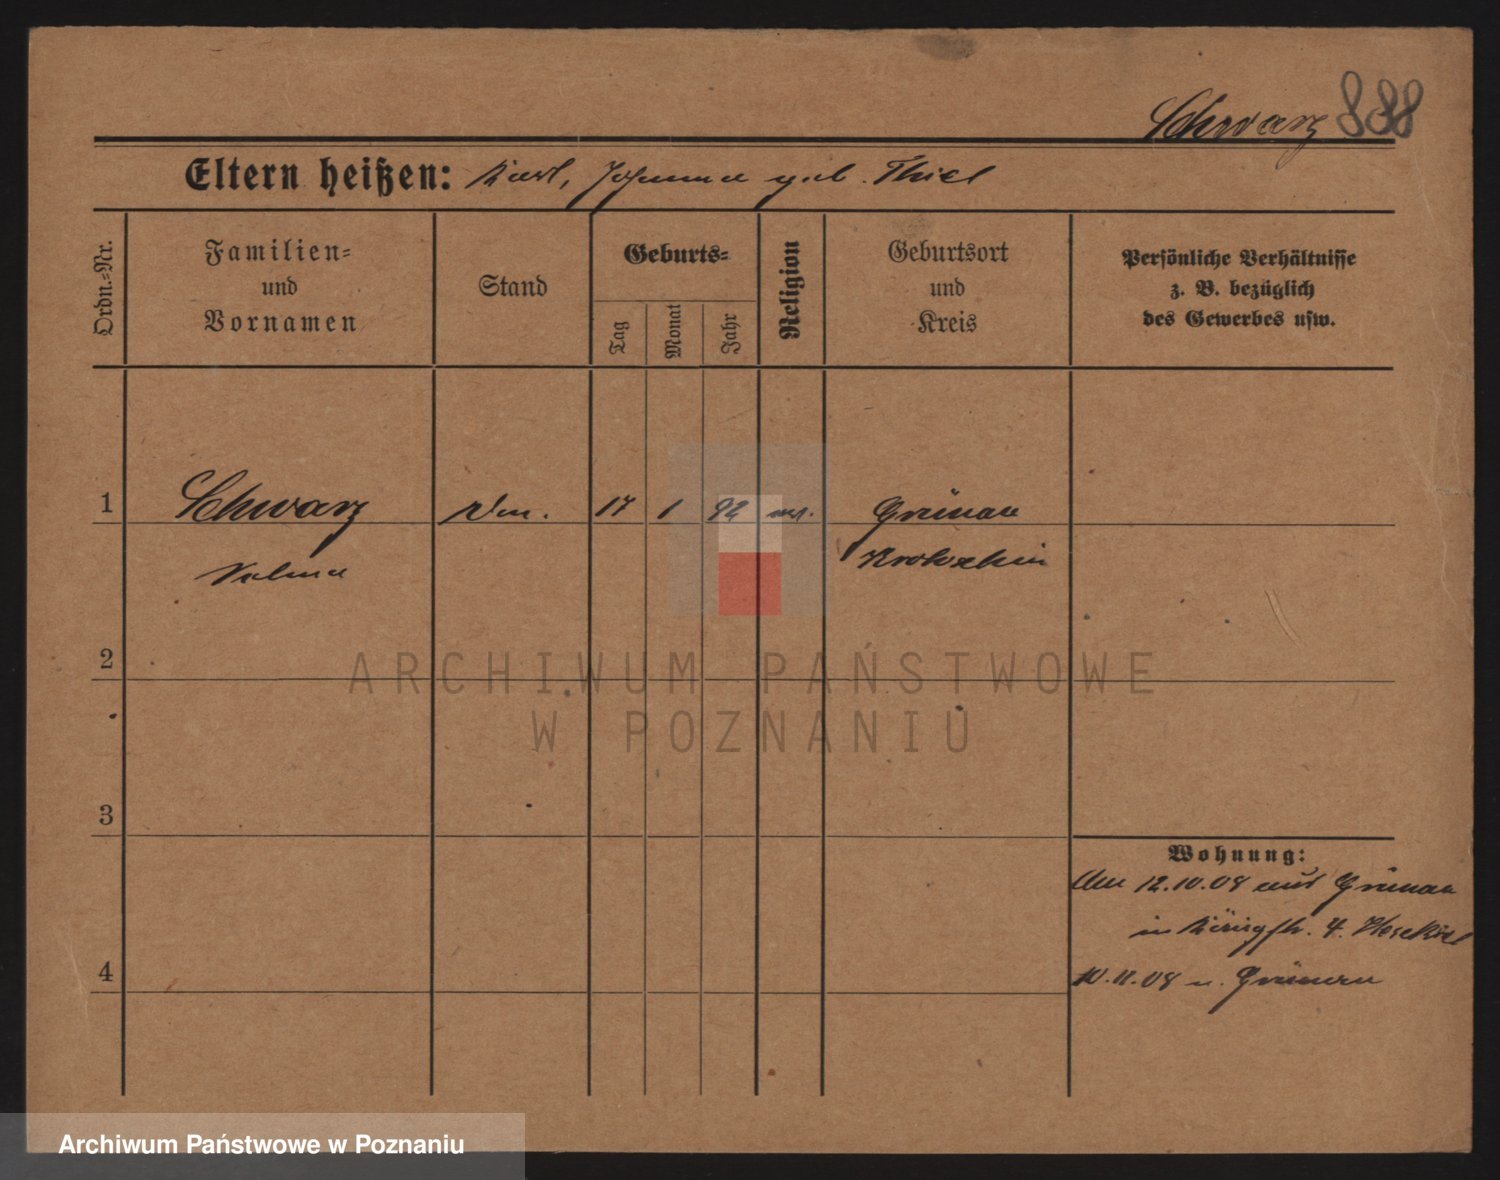 Schwarz 888
Eltern heißen: Karl, Johanna geb. Thiel
Ordn.-Nr.
Familien-
und
Vornamen
Stand
Geburts-
Tag
Monat
Jahr
Religion
Geburtsort
und
Kreis
Persönliche Verhältnisse
z. B. bezüglich
des Gewerbes usw.
1
Schwarz
17 1 92
Grünau
Krotoschin
2
ARCHIWUM PAŃSTWOWE
W POZNANIU
3
Wohnung:
Am 12.10.08 aus Grünau
in Königstr. 4.
4
10.11.08 n. Grünau
Archiwum Państwowe w Poznaniu